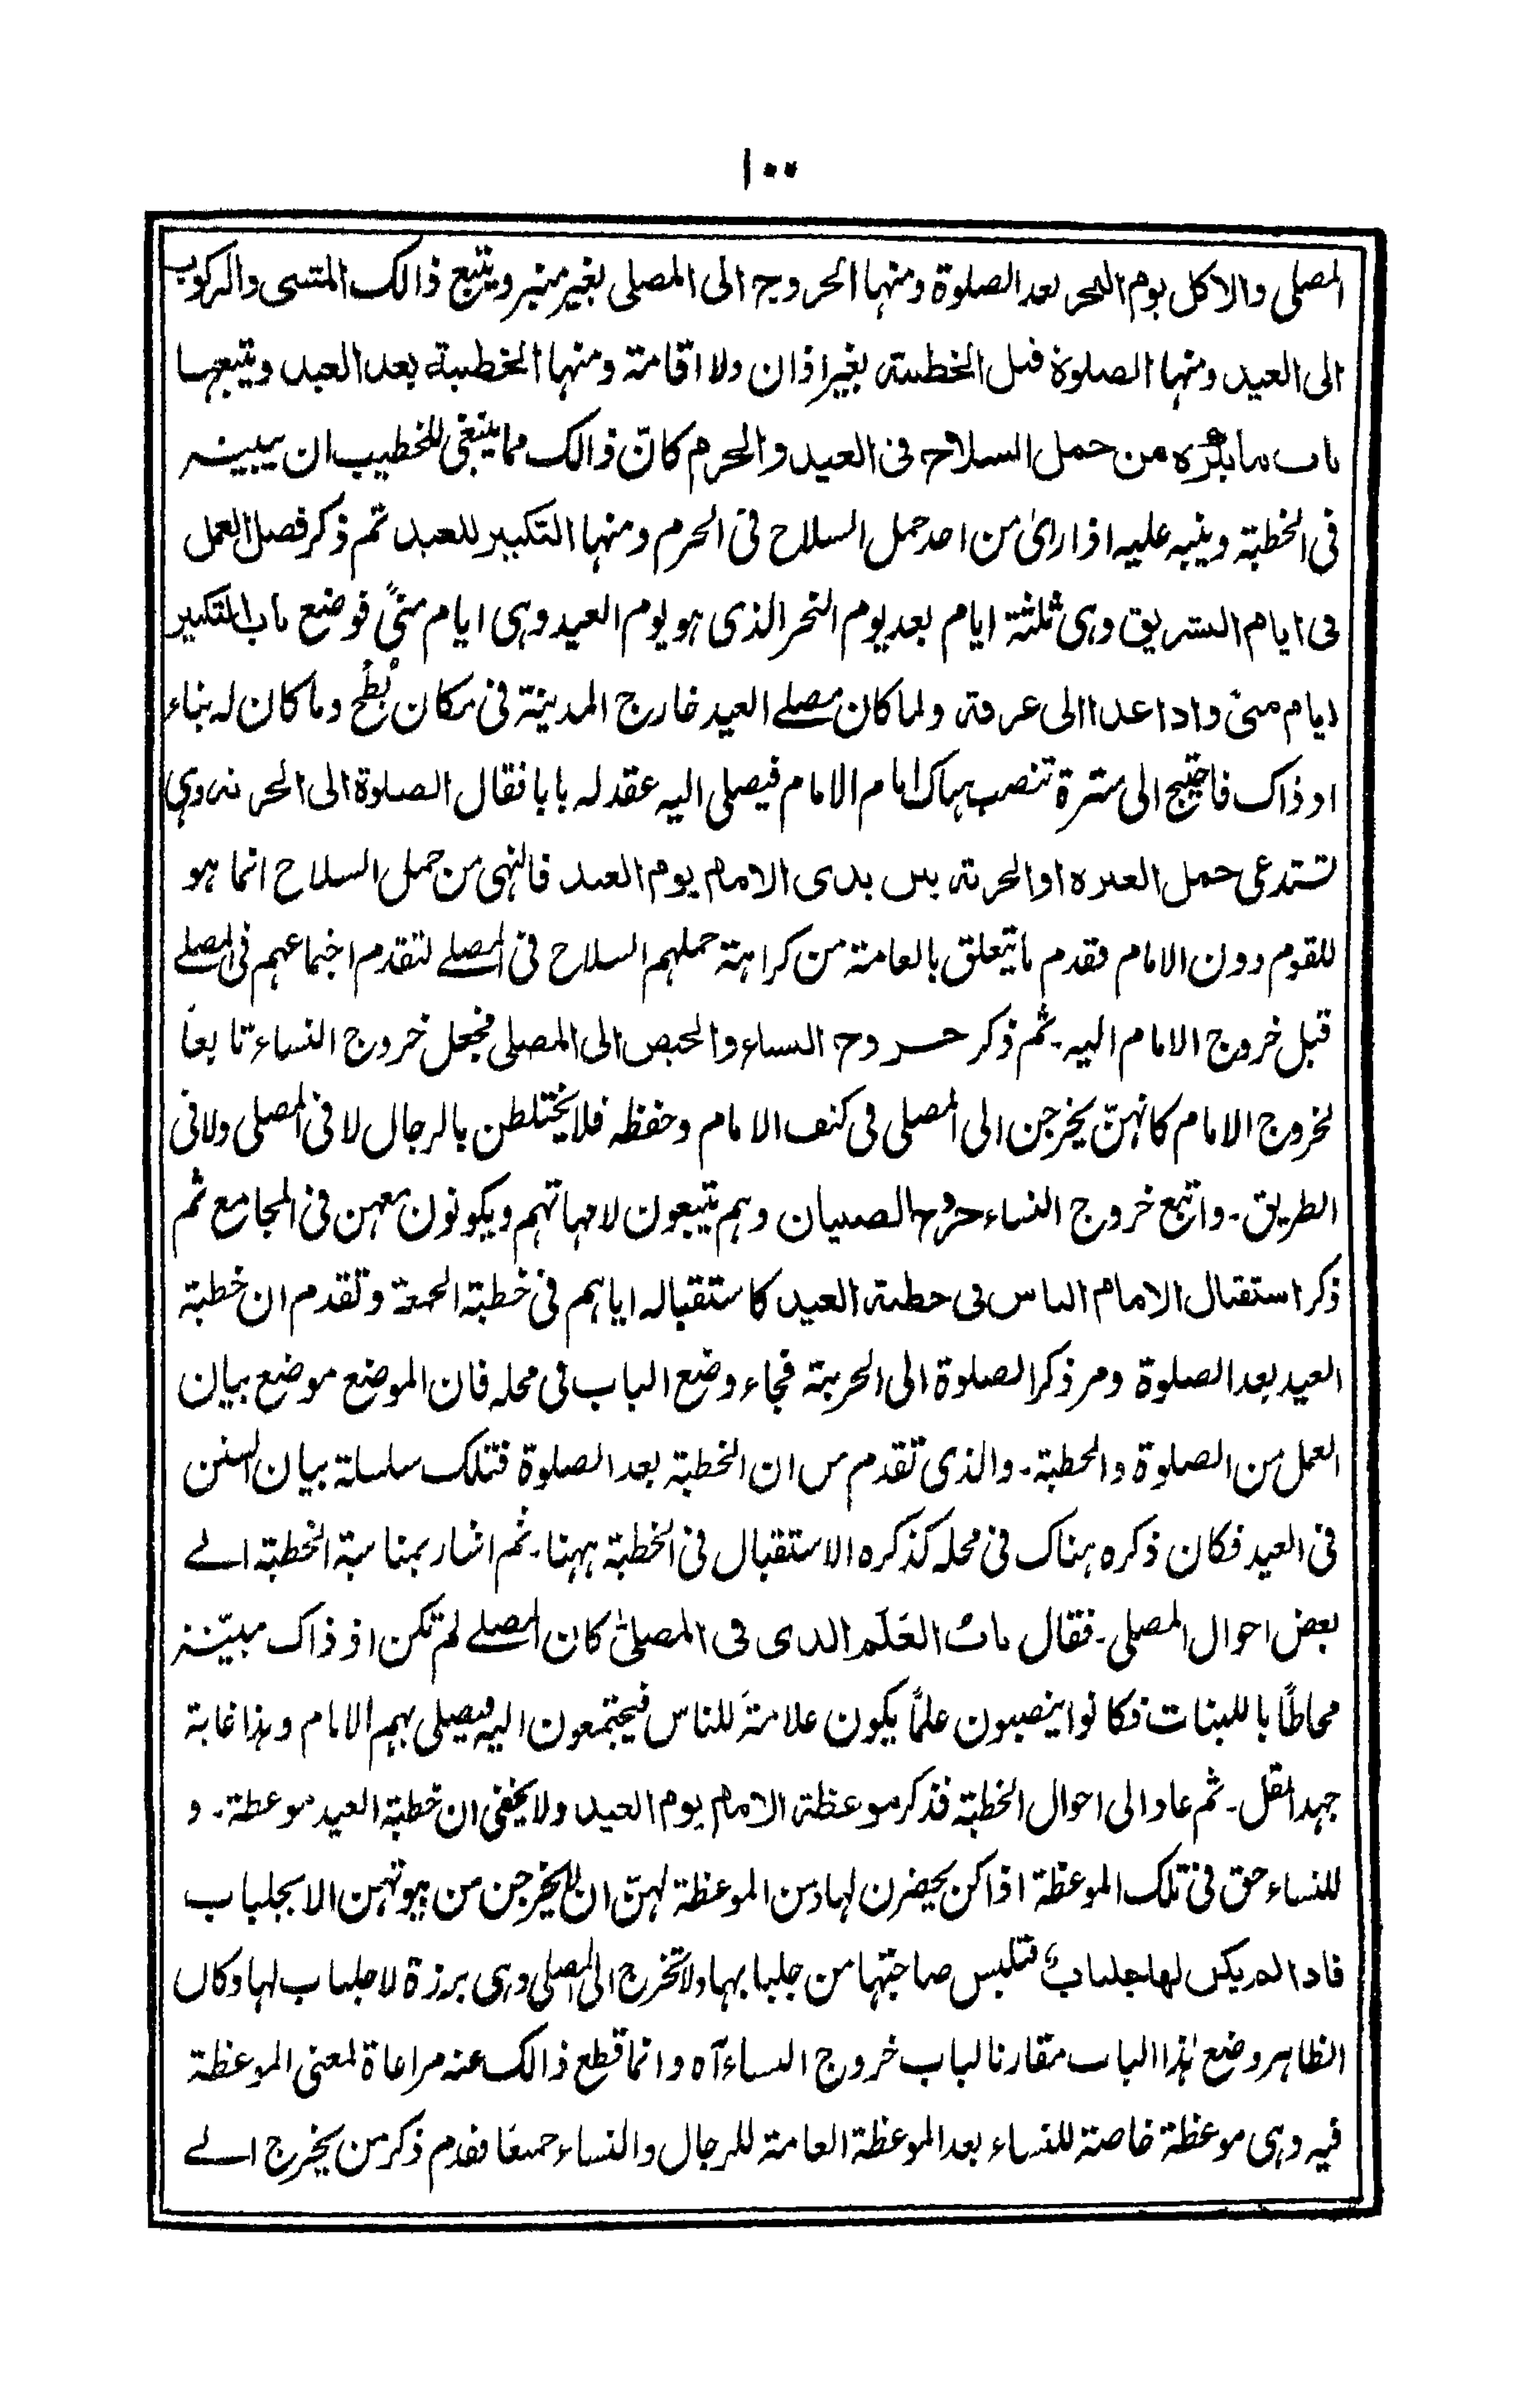 ١٠٠
المصلى والاكل يوم النحر بعد الصلوة ومنها الخروج الى المصلى بغير منبر ويتبع ذالك المشى والركوب
الى العيد ومنها الصلوة قبل الخطبة بغير اذان ولا اقامة ومنها الخطبة بعد العيد ويتبعها
باب ما يكره من حمل السلاح فى العيد والحرم كانّ ذالك مما ينبغى للخطيب ان يبينه
فى الخطبة وينبه عليه اذا راىٰ من احد حمل السلاح فى الحرم ومنها التكبير للعيد ثم ذكر فضل العمل
فى ايام التشريق وهى ثلثة ايام بعد يوم النحر الذى هو يوم العيد وهى ايام منىً فوضع باب التكبير
ايام منىً واذا غدا الى عرفة ولما كان مصلے العيد خارج المدينة فى مكان بُطْح وما كان له بناء
اذ ذاك فاحتيج الى سترة تنصب هناك امام الامام فيصلى اليه عقد له بابا فقال الصلوة الى الحربة وهى
تستدعى حمل العنزة او الحربة بين يدى الامام يوم العيد فالنهى من حمل السلاح انما هو
للقوم دون الامام فقدم ما يتعلق بالعامة من كراهة حملهم السلاح فى المصلے لتقدم اجتماعهم فى المصلے
قبل خروج الامام اليه۔ ثم ذكر خروج النساء والحيض الى المصلى فجعل خروج النساء تابعاً
لخروج الامام كانهنّ يخرجن الى المصلى فى كنف الامام وحفظه فلا يختلطن بالرجال لا فى المصلى ولا فى
الطريق۔ واتبع خروج النساء خروج الصبيان وهم يتبعون لامهاتهم ويكونون معهن فى المجامع ثم
ذكر استقبال الامام الناس فى خطبة العيد كاستقباله اياهم فى خطبة الجمعة وتقدم ان خطبة
العيد بعد الصلوة ومر ذكر الصلوة الى الحربة فجاء وضع الباب فى محله فان الموضع موضع بيان
العمل من الصلوة والخطبة۔ والذى تقدم من ان الخطبة بعد الصلوة فتلك سلسلة بيان السنن
فى العيد فكان ذكره هناك فى محله كذكره الاستقبال فى الخطبة ههنا۔ ثم اشار بمناسبة الخطبة الے
بعض احوال المصلى۔ فقال بابُ العَلَم الذى فى المصلىٰ كان المصلے لم تكن اذ ذاك مبيّنة
محاطًا باللبنات فكانوا ينصبون علمًا يكون علامةً للناس فيجتمعون اليه فيصلى بهم الامام وهذا غاية
جهد المقل۔ ثم عاد الى احوال الخطبة فذكر موعظة الامام يوم العيد ولا يخفى ان خطبة العيد موعظة۔ و
للنساء حق فى تلك الموعظة اذا كن يحضرن لها ومن الموعظة لهنّ ان لا يخرجن من بيوتهن الا بجلباب
فاذا لم يكن لها جلبابٌ فتلبس صاحبتها من جلبابها ولا تخرج الى المصلى وهى برزة لا جلباب لها وكان
الظاهر وضع هٰذا الباب مقارنا لباب خروج النساء آه وانما قطع ذالك عنه مراعاة لمعنى الموعظة
فيه وهى موعظة خاصة للنساء بعد الموعظة العامة للرجال والنساء جميعًا فقدم ذكر من يخرج الے